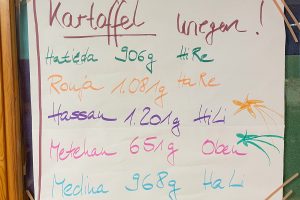 Kartoffel wiegen!
Hatieda 906g HiRe
Ronja 1.081g HaRe
Hassan 1.201g HiLi
Metehan 651g Oben
Medina 968g HaLi